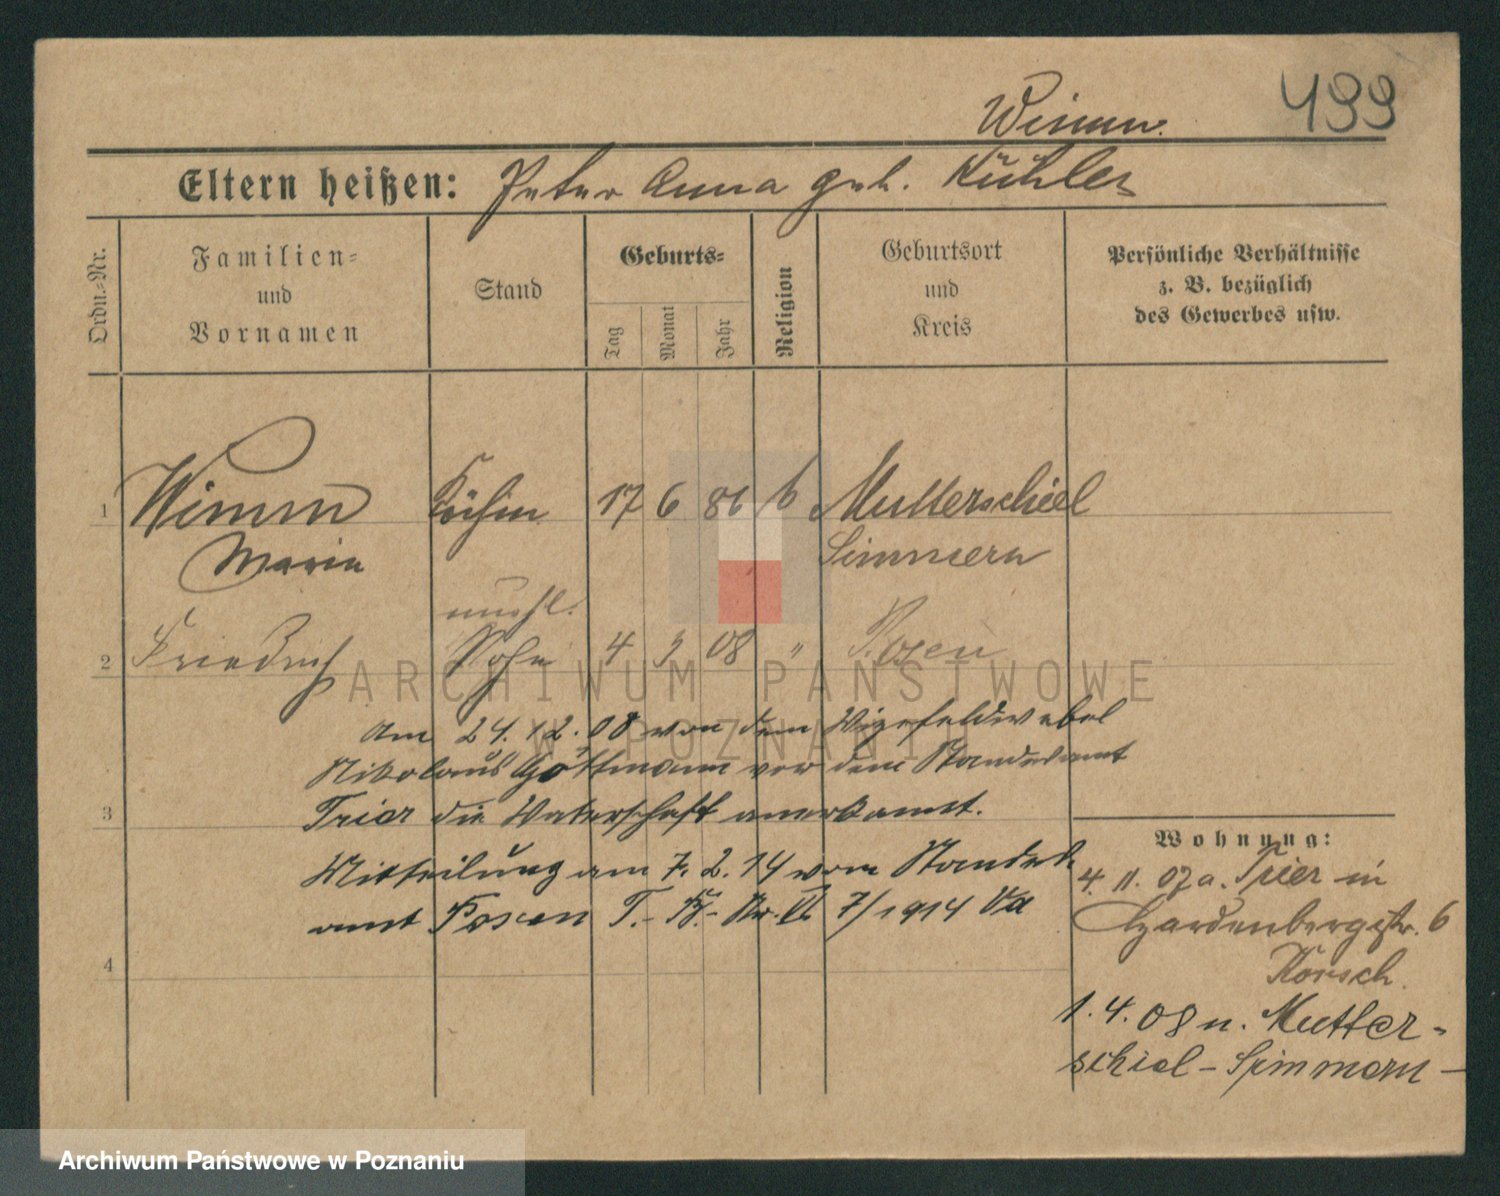 499
Wimm.
Eltern heißen: Peter Anna geb. Kühler
Ordn.-Nr.
Familien-
und
Vornamen
Stand
Geburts-
Tag
Monat
Jahr
Religion
Geburtsort
und
Kreis
Persönliche Verhältnisse
z. B. bezüglich
des Gewerbes usw.
1 Wimm Köchin 17 6 86 Mutterschiel
Marie Simmern
unehl.
2 Friedrich Sohn 4 08 " Posen
Am 24.12.08 von dem Vizefeldwebel
Nikolaus Göttmann vor dem Standesamt
3 Trier die Vaterschaft anerkannt.
Mitteilung am 7.2.14 vom Standes-
amt Posen T.-B.-Nr. VI 7/1914 Va
4
Wohnung:
4. 11. 07 a. Trier in
Hardenbergstr. 6
Korsch.
1.4.08 n. Mutter-
schiel - Simmern -
ARCHIWUM PAŃSTWOWE
W POZNANIU
Archiwum Państwowe w Poznaniu